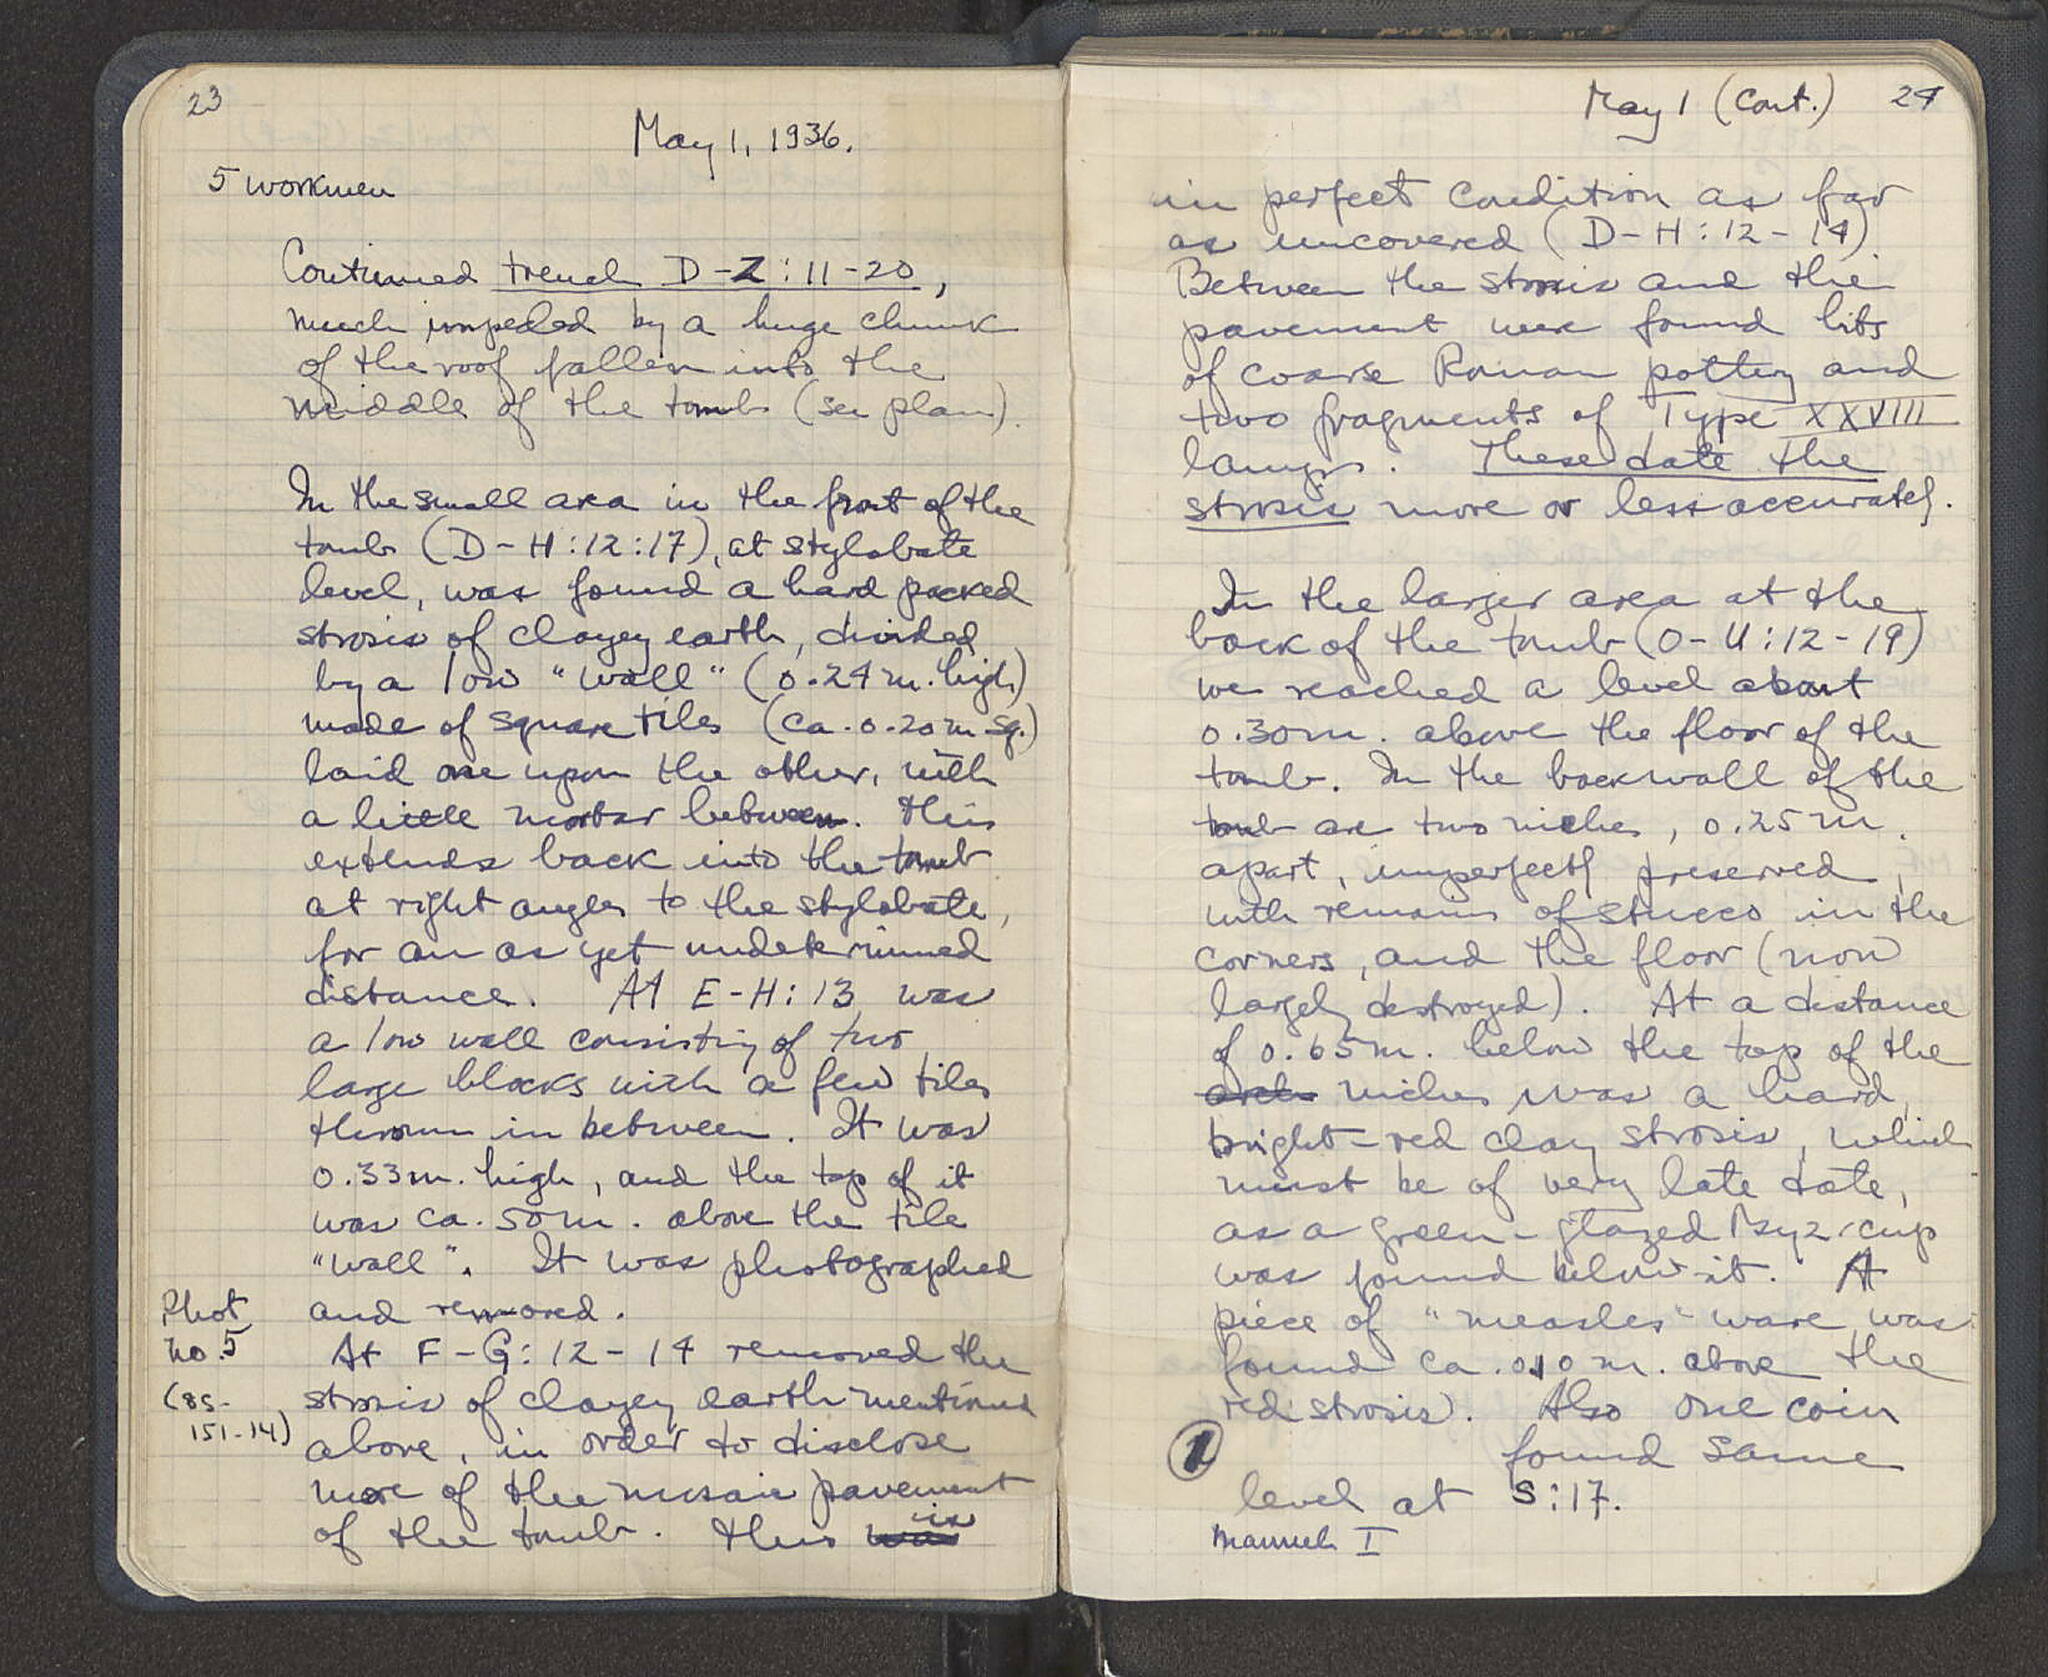 23
May 1, 1936.
5 workmen
Continued trench D-Z:11-20,
much impeded by a huge chunk
of the roof fallen into the
middle of the tomb (see plan).
In the small area in the front of the
tomb (D-H:12:17), at stylobate
level, was found a hard packed
strosis of clayey earth, divided
by a low "wall" (0.24m. high)
made of square tiles (ca. 0.20m sq.)
laid one upon the other, with
a little mortar between. This
extends back into the tomb
at right angles to the stylobate,
for an as yet undetermined
distance. At E-H:13 was
a low wall consisting of two
large blocks with a few tiles
thrown in between. It was
0.33m. high, and the top of it
was ca. 50m. above the tile
"wall". It was photographed
and removed.
Phot
no.5
(85-
151-14)
At F-G:12-14 removed the
strosis of clayey earth mentioned
above, in order to disclose
more of the mosaic pavement
of the tomb. This was is
May 1 (Cont.) 24
in perfect condition as far
as uncovered (D-H:12-14)
Between the strosis and the
pavement were found bits
of coarse Roman pottery and
two fragments of Type XXVIII
lamps. These date the
strosis more or less accurately.
In the larger area at the
back of the tomb (O-U:12-19)
we reached a level about
0.30m. above the floor of the
tomb. In the backwall of the
tomb are two niches, 0.25m.
apart, imperfectly preserved,
with remains of stucco in the
corners, and the floor (now
largely destroyed). At a distance
of 0.65m. below the top of the
arch niches was a hard,
bright-red clay strosis, which
must be of very late date,
as a green-glazed Byz. cup
was found below it. A
piece of "measles" ware was
found ca. 0.10m. above the
red strosis. Also one coin
1
found same
level at S:17.
Manuel I